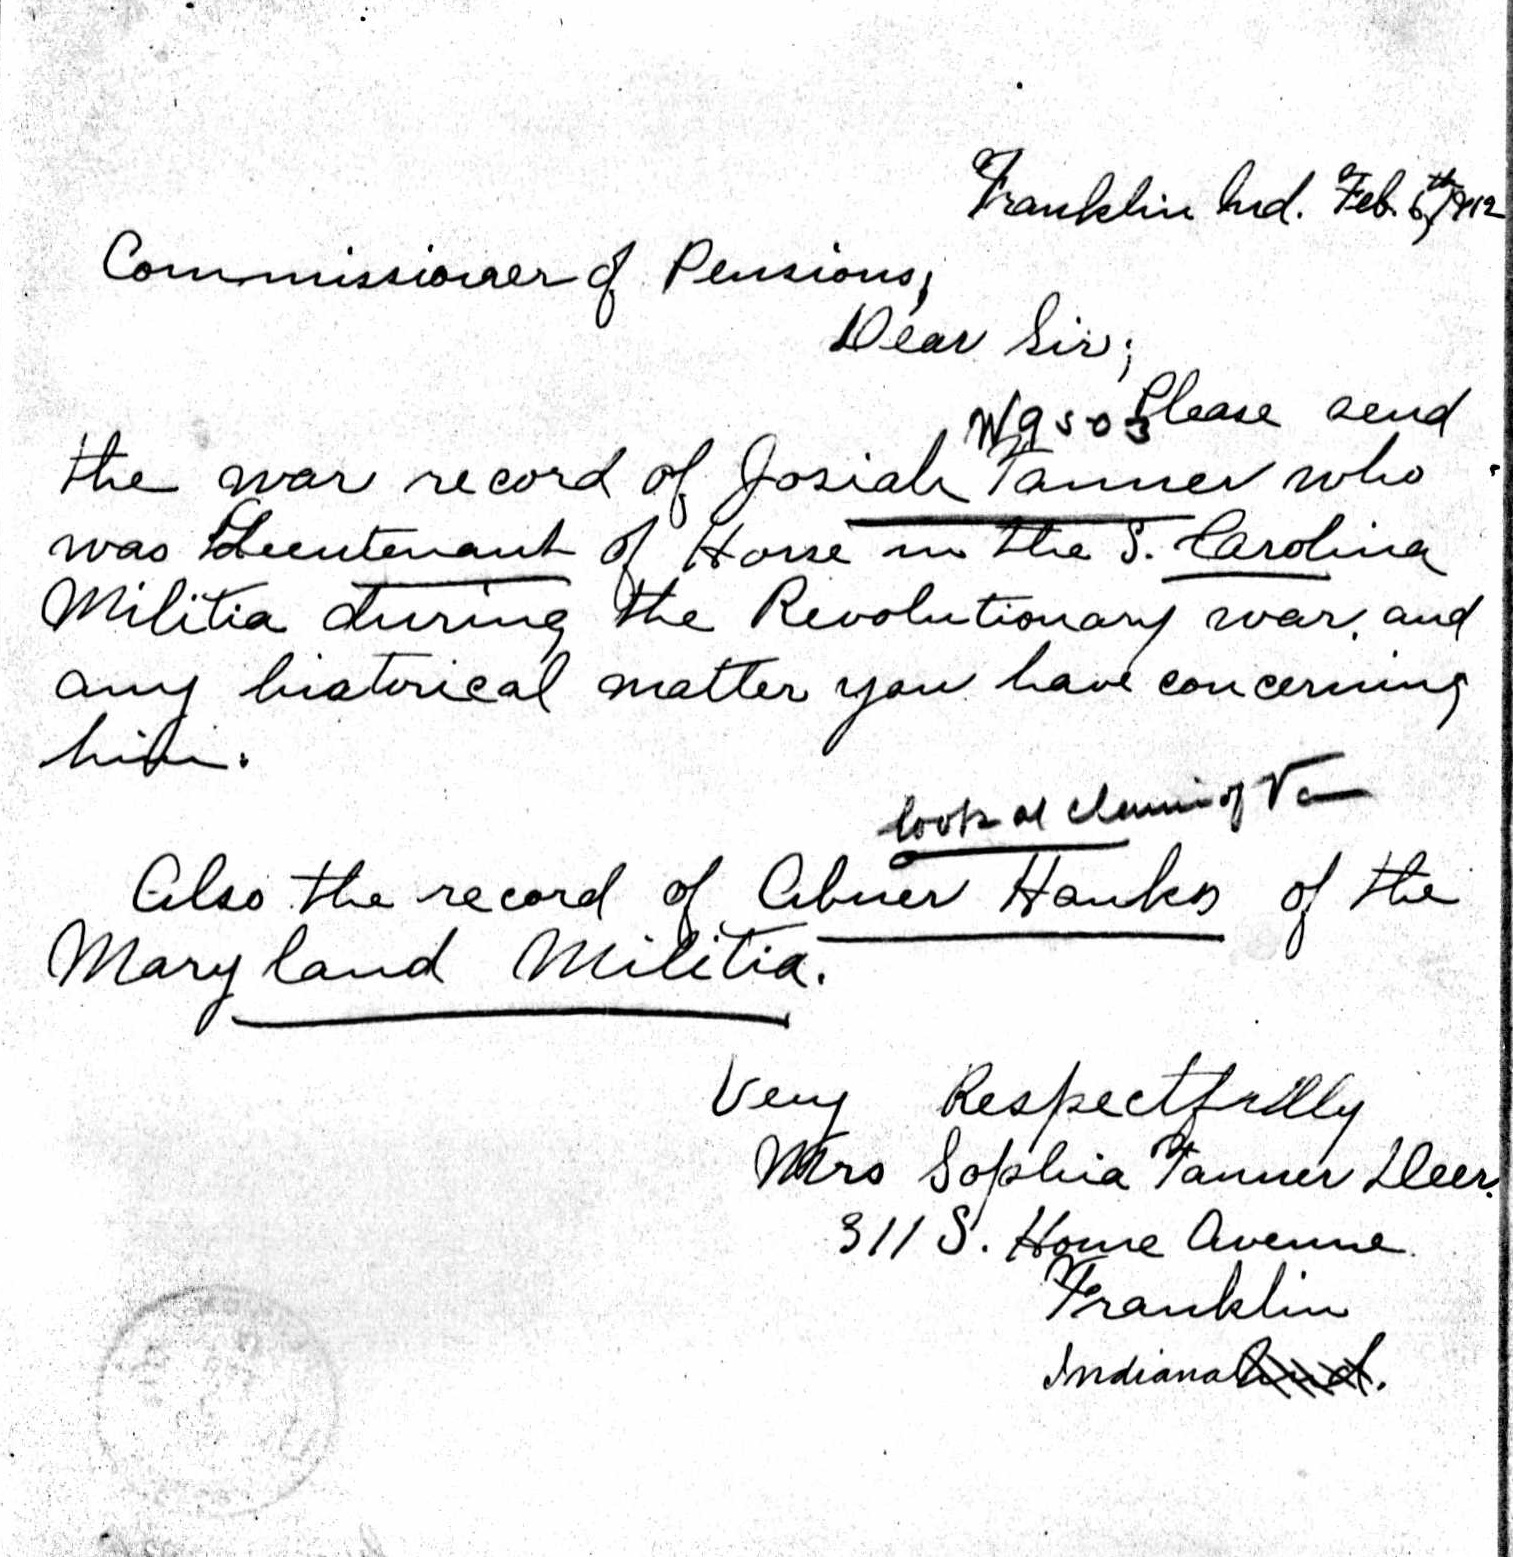 Franklin Ind. Feb. 6th, 1912
Commissioner of Pensions,
Dear Sir;
W9503 Please send
the war record of Josiah Tanner who
was Lieutenant of Horse in the S. Carolina
Militia during the Revolutionary war, and
any historical matter you have concerning
him.
look at claim of Va
Also the record of Abner Hanks of the
Maryland Militia.
Very Respectfully
Mrs Sophia Tanner Deer.
311 S. Home Avenue
Franklin
Indiana Ind.